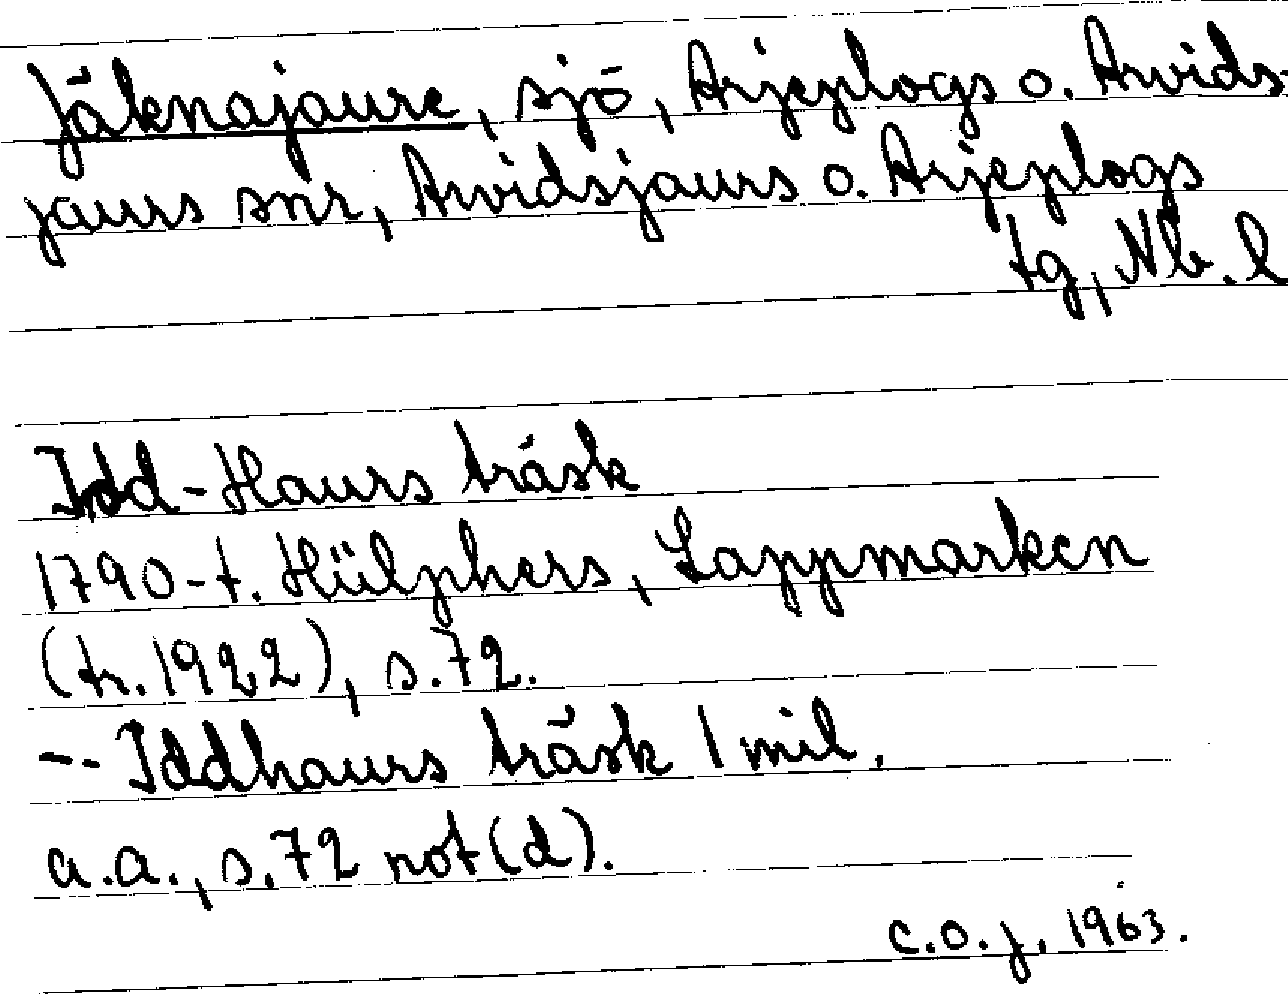 Jäknajaure, sjö, Arjeplogs o. Arvids-
jaurs snr, Arvidsjaurs o. Arjeplogs
tg, Nb. l
Idd-Haurs träsk
1790-t. Hülphers, Lappmarken
(tr. 1922), s. 72.
-- Iddhaurs träsk 1 mil.
a.a., s. 72 not (d).
C.O.J. 1963.